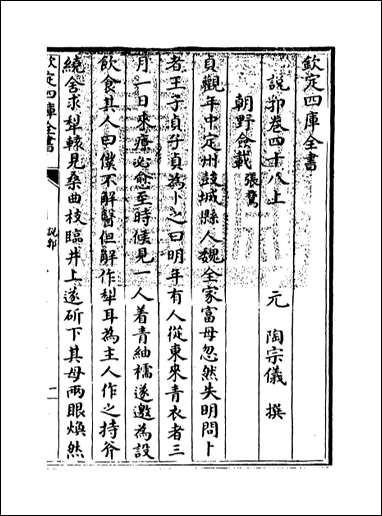 欽定四庫全書
說郛卷四十八上
元 陶宗儀 撰
朝野僉載 張鷟
貞觀年中定州鼓城縣人魏全家富母忽然失明問卜
者王子貞子貞為卜之曰明年有人從東來青衣者三
月一日來療必愈至時候見一人着青紬襦遂邀為設
飲食其人曰僕不解醫但解作犁耳為主人作之持斧
繞舍求犁轅見桑曲枝臨井上遂斫下其母兩眼煥然
欽定四庫全書
說郛
二